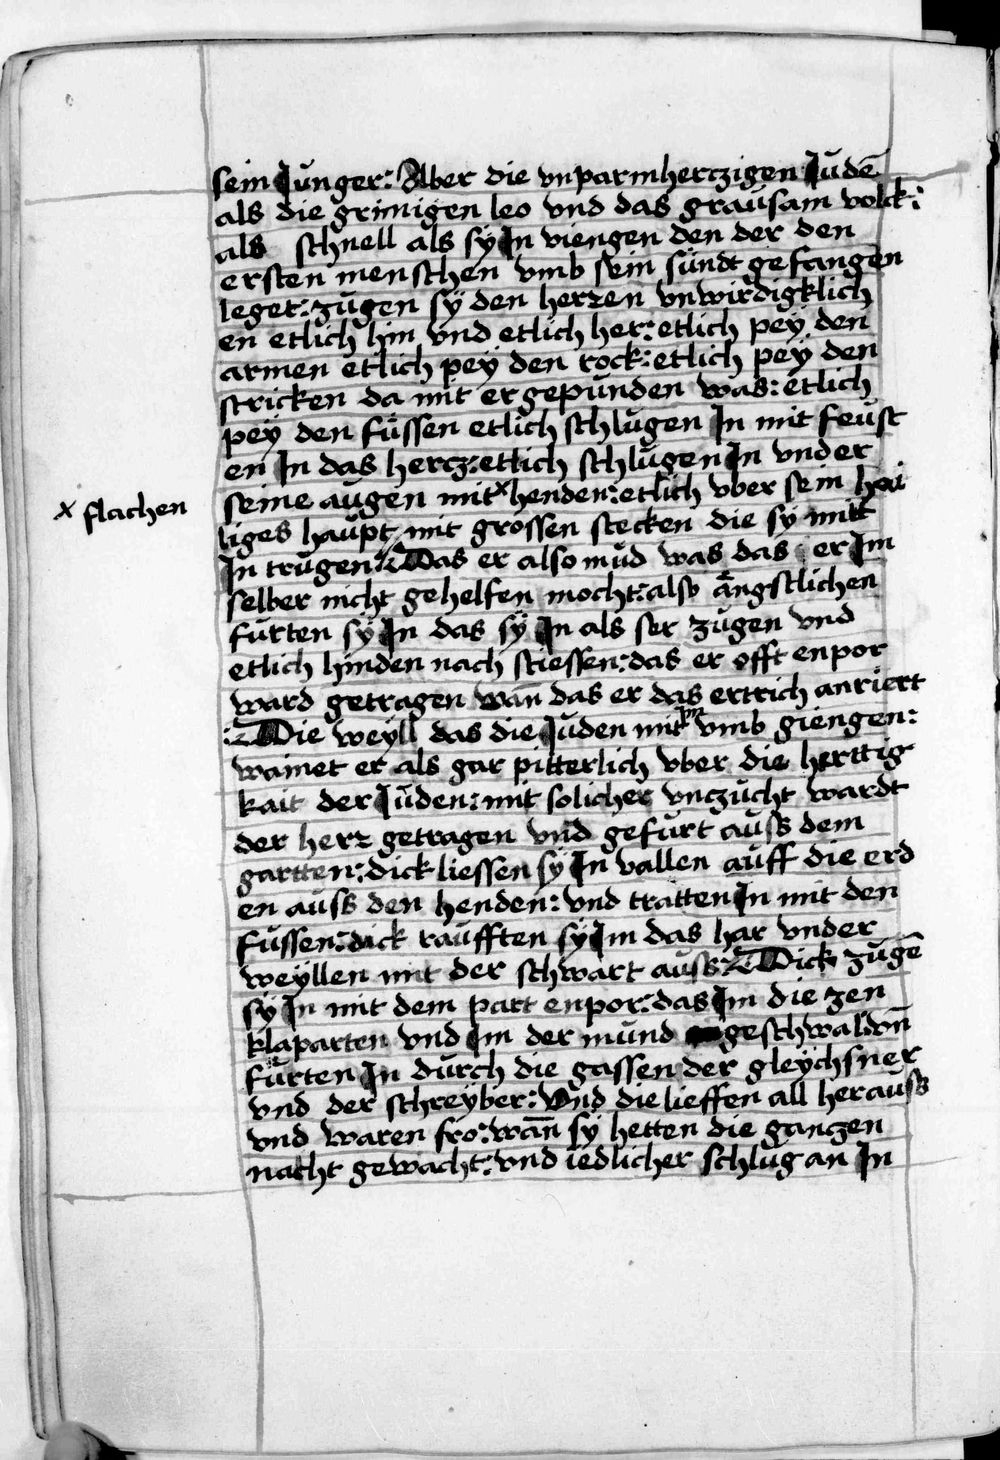 sein Junger: Aber die vnparmherczigen Judē
als die grimigen leo vnd das grausam volck:
als schnell als sÿ In viengen den der den
ersten menschen vmb sein sündt gefangen
leget: zugen sÿ den herren vnwirdigklich
en etlich hin vnd etlich her: etlich peÿ den
armen etlich peÿ den rock: etlich peÿ den
stricken da mit er gepunden was: etlich
peÿ den füssen etlich schlugen In mit feust
en In das hercz: etlich schlugen In vnder
seine augen mit x henden: etlich vber sein hai
x flachen
liges haupt mit grossen stecken die sÿ mitt
In trugen: Das er also müd was das er Im
selber nicht gehelfen mocht: also ängstlichen
furten sÿ In das sÿ In als ser zugen vnd
etlich hinden nach stiessen: das er offt enpor
ward getragen wan̄ das er das ertrich anriert
: Die weyll das die Juden mit Im vmb giengen:
wainet er als gar pitterlich vber die herttig
kait der Juden: mit solicher vnczucht wardt
der herr getragen vnd gefurt auss dem
gartten: dick liessen sÿ In vallen auff die erd
en auss den henden: vnd tratten In mit den
füssen: dick raufften sÿ Im das har vnder
weyllen mit der schwart auss: Dick zugē
sÿ In mit dem part enpor: das Im die zen
klaparten vnd Im der mund geschwal: vn̄
fürten In durch die gassen der gleychsner
vnd der schreÿber: Vnd die lieffen all herauss
vnd waren fro: wan̄ sÿ hetten die ganzen
nacht gewacht: vnd iedlicher schlug an In